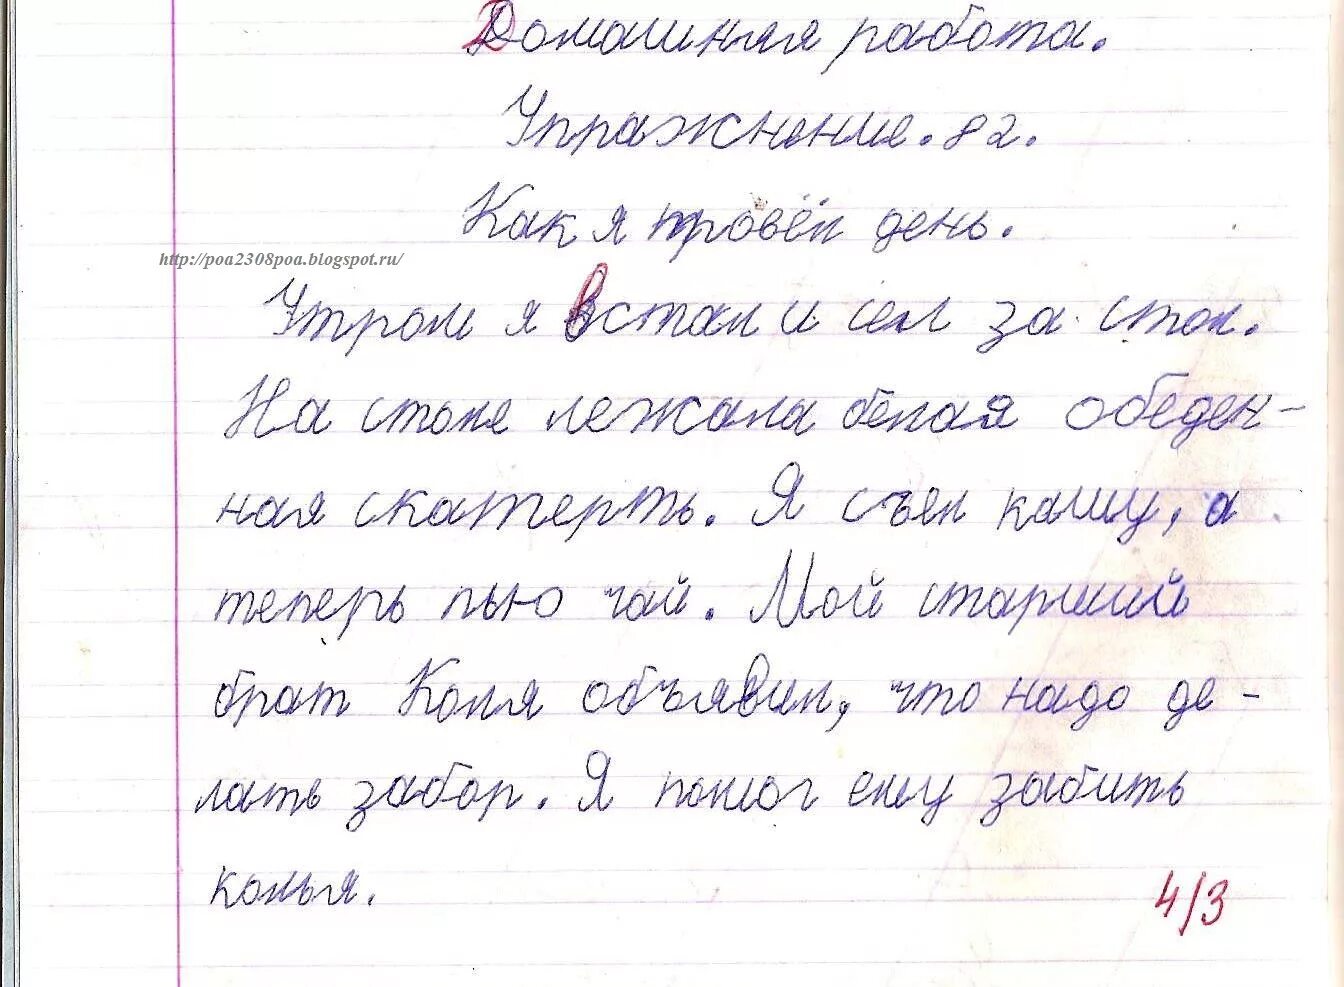 Домашняя работа.
Упражнение. 82.
Как я провёл день.
http://poa2308poa.blogspot.ru/
Утром я встал и сел за стол.
На столе лежала белая обеден-
ная скатерть. Я съел кашу, а
теперь пью чай. Мой старший
брат Коля объявил, что надо де-
лать забор. Я помог ему забить
колья.
4/3